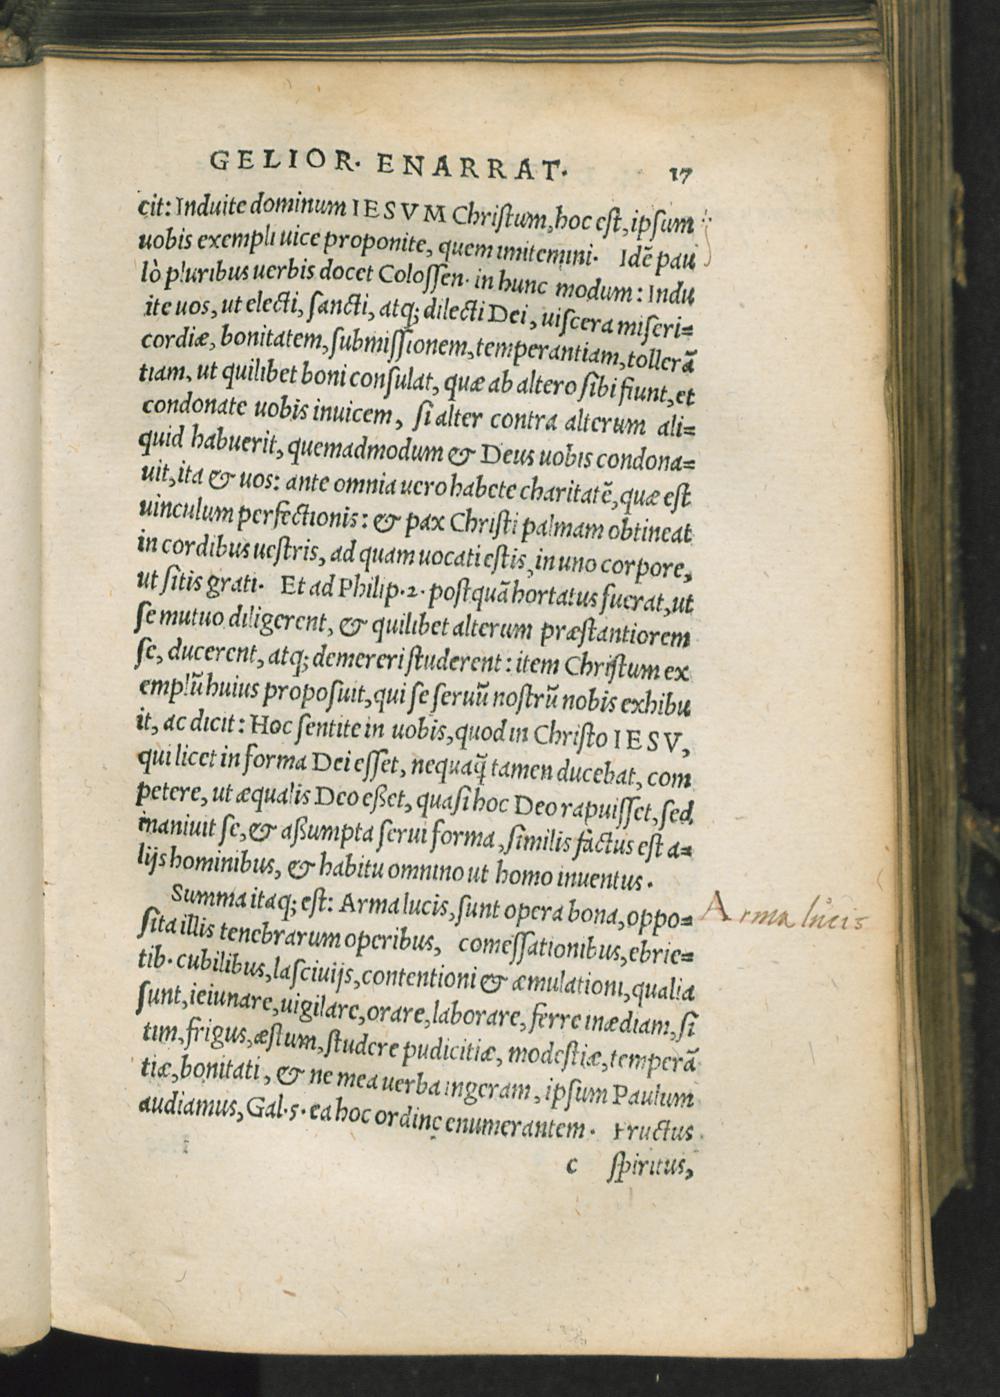 GELIOR. ENARRAT. 17
cit: Induite dominum IESVM Christum, hoc est, ipsum
uobis exempli uice proponite, quem imitemini. Idē pau
lò pluribus uerbis docet Colossen. in hunc modum: Indu
ite uos, ut electi, sancti, atq; dilecti Dei, uiscera miseri=
cordiæ, bonitatem, submissionem, temperantiam, tollerā
tiam, ut quilibet boni consulat, quæ ab altero sibi fiunt, et
condonate uobis inuicem, si alter contra alterum ali=
quid habuerit, quemadmodum & Deus uobis condona=
uit, ita & uos: ante omnia uero habete charitatē, quæ est
uinculum perfectionis: & pax Christi palmam obtineat
in cordibus uestris, ad quam uocati estis, in uno corpore,
ut sitis grati. Et ad Philip. 2. postquā hortatus fuerat, ut
se mutuo diligerent, & quilibet alterum præstantiorem
se, ducerent, atq; demereri studerent: item Christum ex
emplū huius proposuit, qui se seruū nostrū nobis exhibu
it, ac dicit: Hoc sentite in uobis, quod in Christo IESV,
qui licet in forma Dei esset, nequaq̄ tamen ducebat, com
petere, ut æqualis Deo eßet, quasi hoc Deo rapuisset, sed
inaniuit se, & aßumpta serui forma, similis factus est a=
lijs hominibus, & habitu omnino ut homo inuentus.
Summa itaq; est: Arma lucis, sunt opera bona, oppo=
sita illis tenebrarum operibus, comessationibus, ebrie=
tib. cubilibus, lasciuijs, contentioni & æmulationi, qualia
sunt, ieiunare, uigilare, orare, laborare, ferre inædiam, si
tim, frigus, æstum, studere pudicitiæ, modestiæ, temperā
tiæ, bonitati, & ne mea uerba ingeram, ipsum Paulum
audiamus, Gal. 5. ea hoc ordine enumerantem. Fructus
c spiritus,
Arma lucis